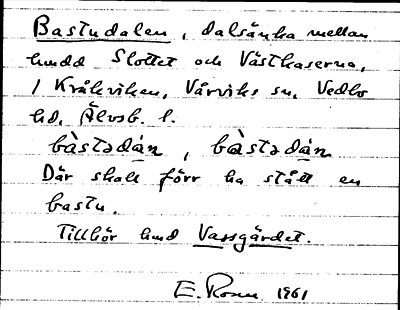 Bastudalen, dalsänka mellan
hmdd Slottet och Västkaserna,
i Kråkviken, Vårviks sn, Vedbo
hd, Älvsb. l.
bàstədán, bàstədán
Där skall förr ha stått en
bastu.
Tillhör hmd Vassgärdet.
E. Rosen 1961